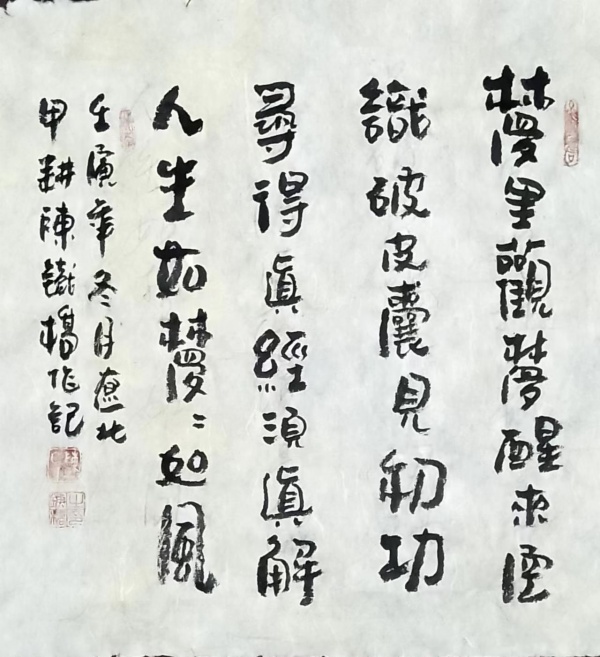 夢里觀夢醒來空
識破皮囊見初功
尋得眞經須眞解
人生如夢〻如風
壬寅年冬月遼北
甲耕陳鐵楊作記